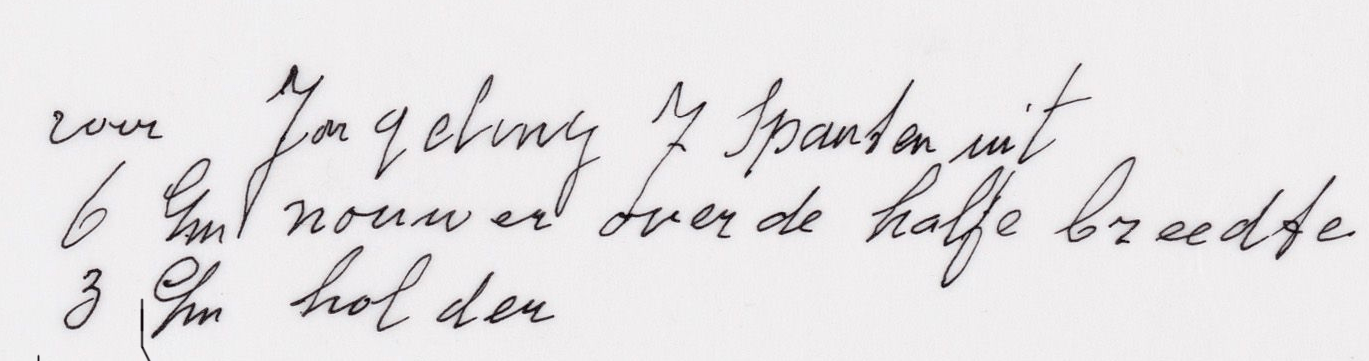 voor Jongeling 7 Spanten uit
6 Cm nouwer over de halfe breedte
3 Cm holder